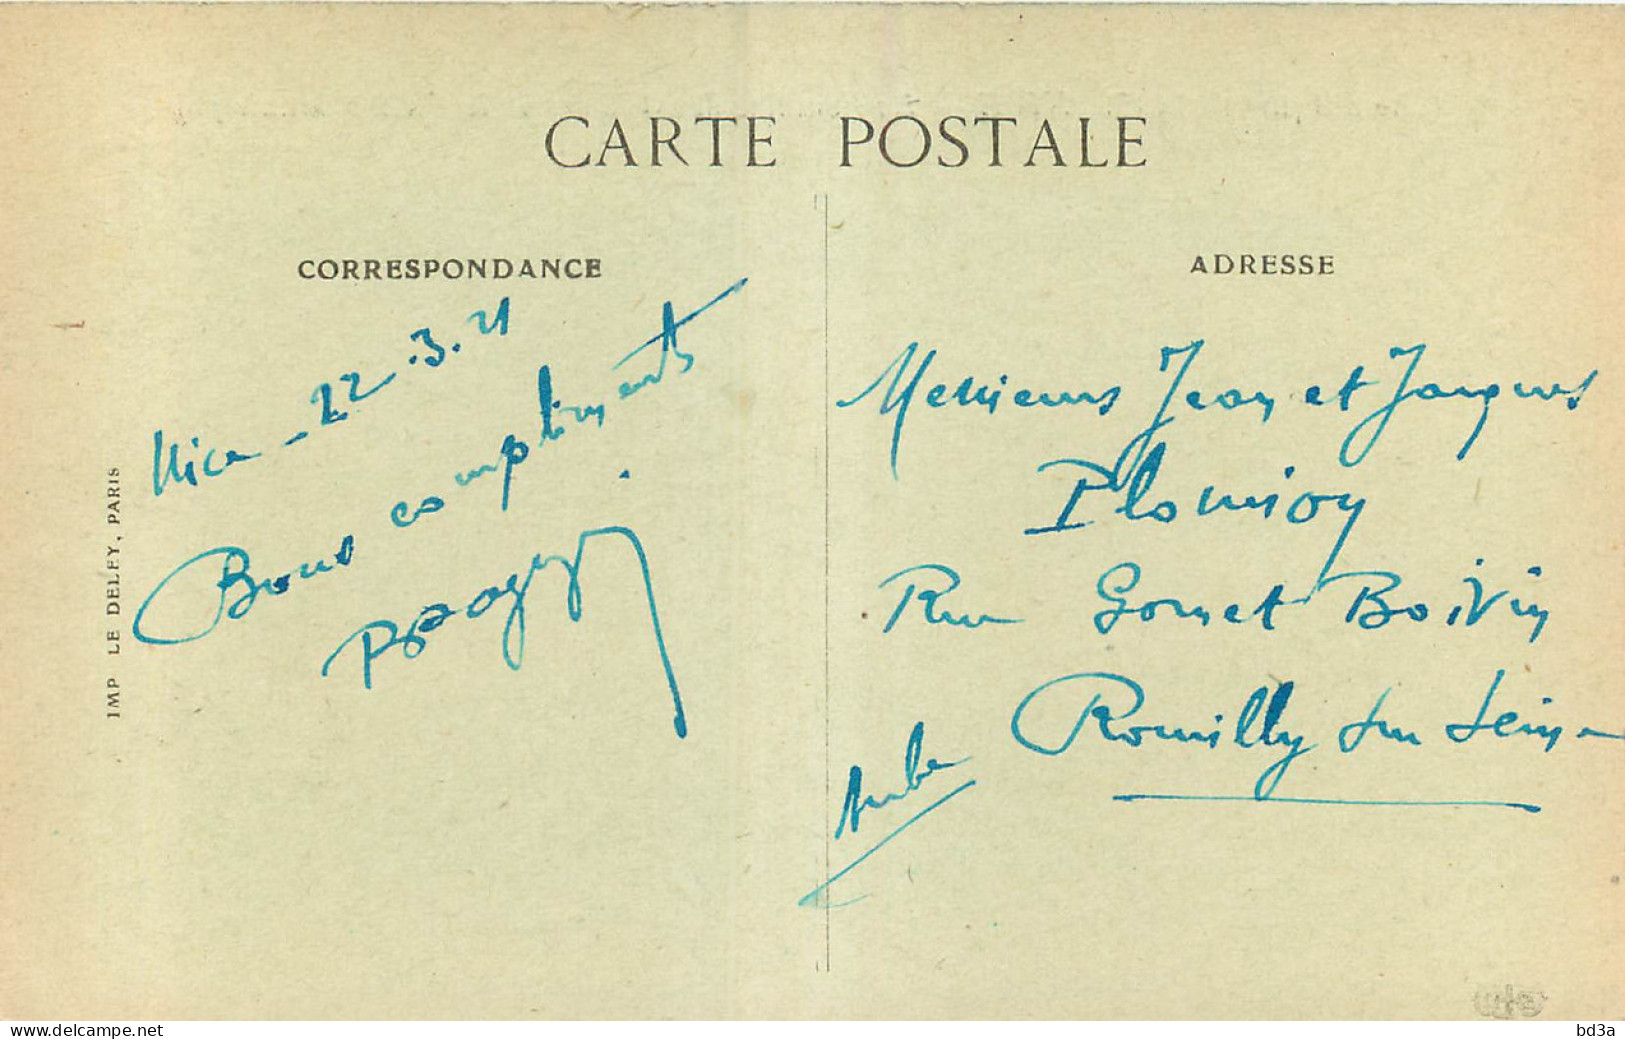 CARTE POSTALE
CORRESPONDANCE
Nice - 22.3.21
Bons compliments.
ADRESSE
Messieurs Jean et Jacques
Plomion
Rue Gornet Boivin
Romilly sur Seine
Aube
IMP LE DELEY, PARIS
www.delcampe.net
bd3a